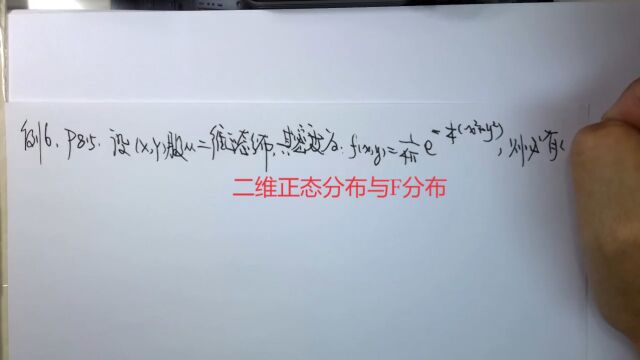 例6. P85. 设(X,Y)服从二维正态分布,其密度为: f(x,y)=1/4π e^{-1/4(x²+y²)}, 则必有(
二维正态分布与F分布